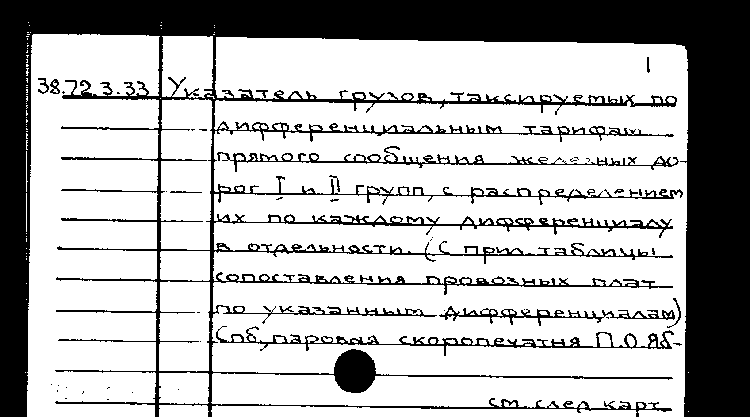 1
38.72.3.33 Указатель грузов, таксируемых по
дифференциальным тарифам
прямого сообщения железных до-
рог I и II групп, с распределением
их по каждому дифференциалу
в отдельности. (С прил. таблицы
сопоставления провозных плат
по указанным дифференциалам)
Спб, паровая скоропечатня П.О.Яб-
см. след. карт.